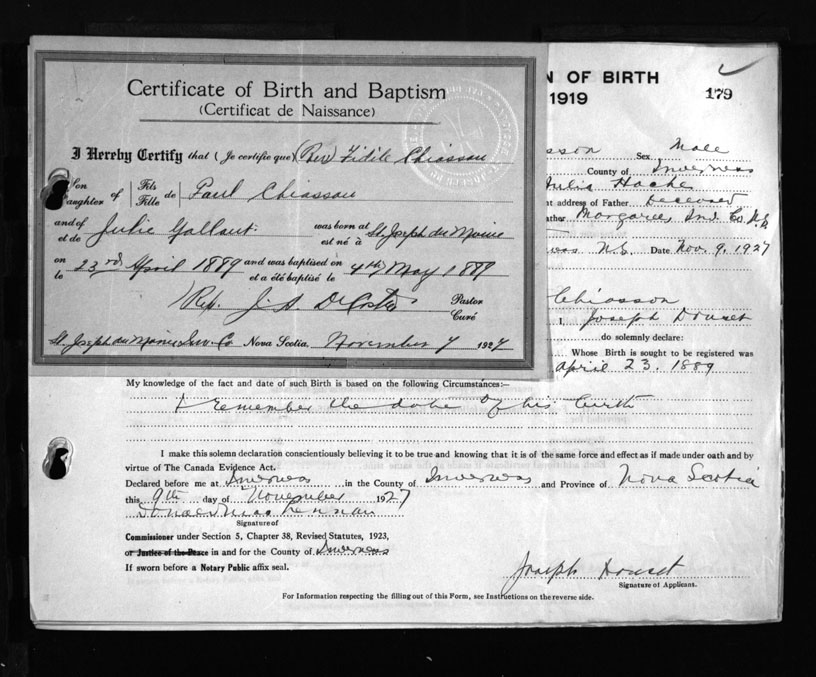 Certificate of Birth and Baptism
(Certificat de Naissance)
I Hereby Certify that (Je certifie que) (Rev) Fidèle Chiasson
Son
Daughter of Fils
Fille de Paul Chiasson
and of
et de Julie Gallant was born at
est né à St Joseph du Moine
on
le 23rd April 1889 and was baptised on
et a été baptisé le 4th May 1889
Rev. J. A. DeCoste Pastor
Curé
St. Joseph du Moine Inv. Co Nova Scotia, November 7 1927
N OF BIRTH
1919
179
sson Sex Male
County of Inverness
Julia Hache
t address of Father Deceased
ather Margaree Inv. Co. N.S.
N.S. Date Nov. 9. 1927
Chiasson
I, Joseph Doucet
do solemnly declare:
Whose Birth is sought to be registered was
April 23. 1889
My knowledge of the fact and date of such Birth is based on the following Circumstances:—
I remember the date of his birth
I make this solemn declaration conscientiously believing it to be true and knowing that it is of the same force and effect as if made under oath and by
virtue of The Canada Evidence Act.
Declared before me at Inverness in the County of Inverness and Province of Nova Scotia
this 9th day of November 1927
Signature of
Commissioner under Section 5, Chapter 38, Revised Statutes, 1923,
or Justice of the Peace in and for the County of Inverness
If sworn before a Notary Public affix seal.
Joseph Doucet
Signature of Applicant.
For Information respecting the filling out of this Form, see Instructions on the reverse side.